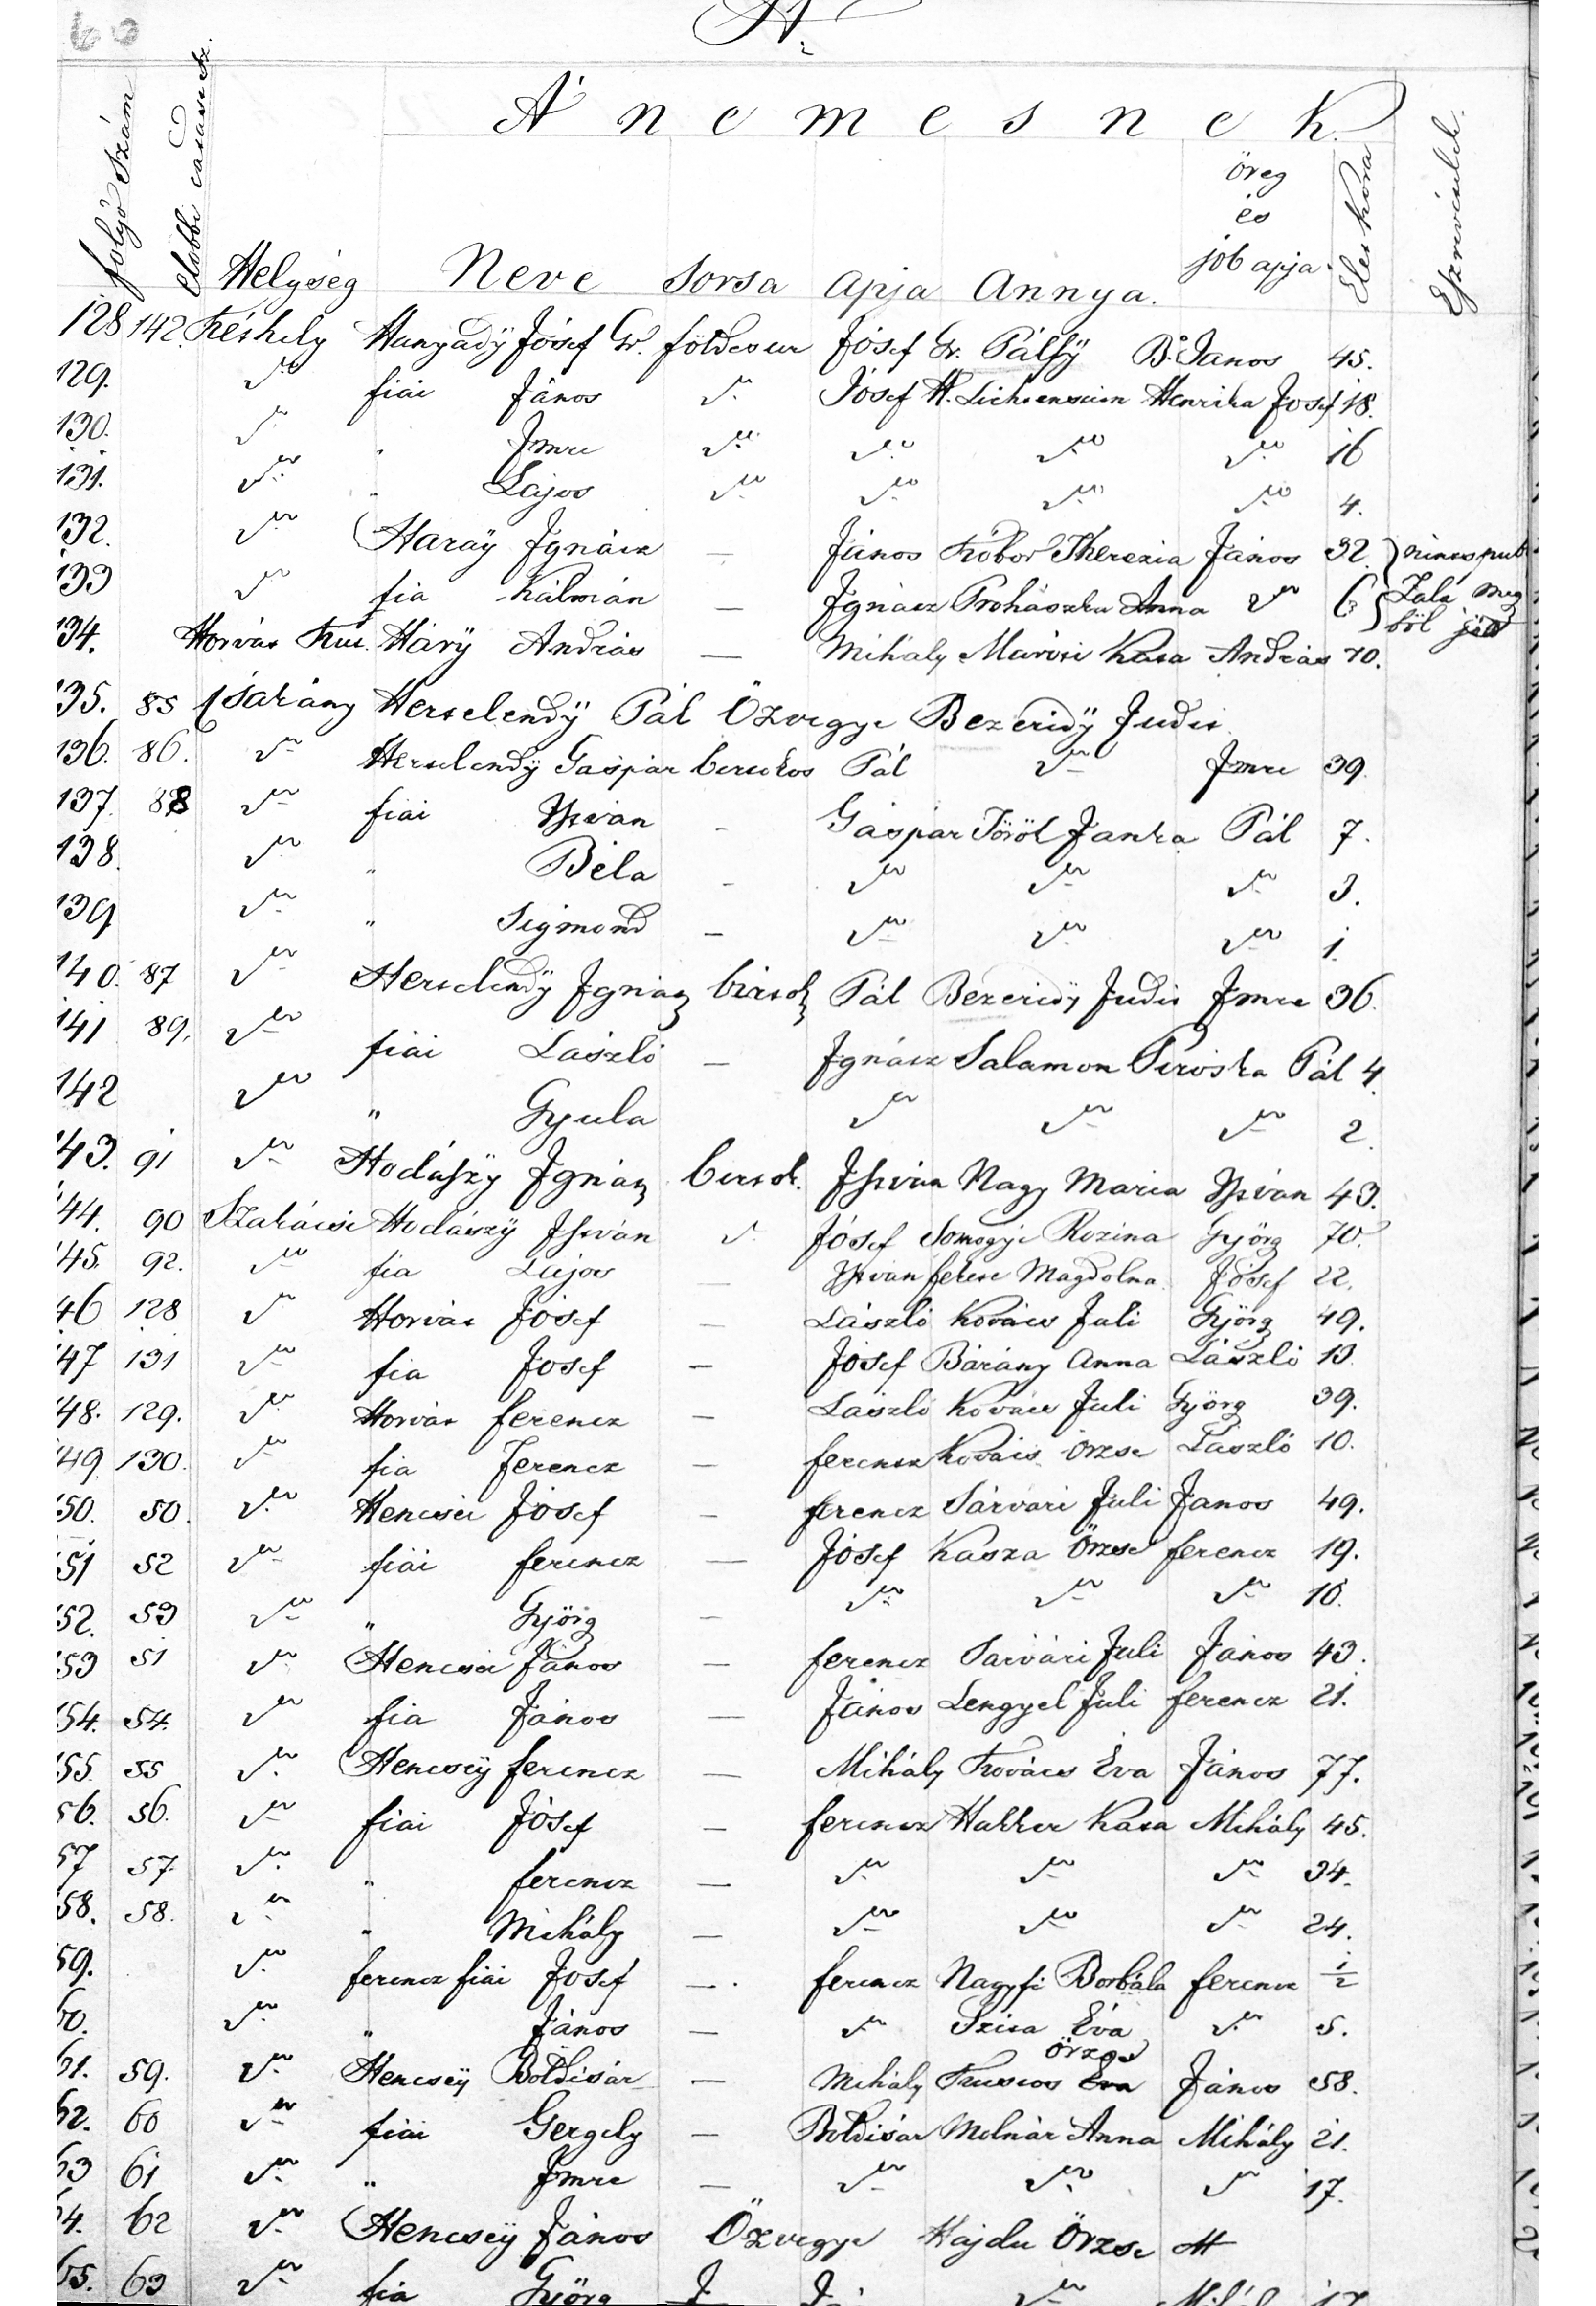 60
A.
A' nemesnek
folyó szám előbbi Helység Neve Sorsa Apja Annya. öreg és jób apja Élet kora Észrevételek.
128 142. Késhely Hunyady Jósef Gr. földesur Jósef Gr. Pálfÿ B. Janos 45.
129. 〃 fiai János 〃 Jósef H. Henrika Josef 18.
130. 〃 〃 Imre 〃 〃 〃 〃 16
131. 〃 〃 Lajos 〃 〃 〃 〃 4.
132. 〃 Haraÿ Ignácz — János Kóbor Therezia János 32. nincs pub
133 〃 fia Kálmán — Ignácz Prohászka Anna 〃 6 Zala meg
ből jött
134. Horvát Kút. Hárÿ András — Mihály Kata András 70.
135. 85 Csákány Hertelendÿ Pál Özvegye Bezeridÿ Judit
136. 86. 〃 Hertelendÿ Gáspár birtokos Pál 〃 Imre 39.
137. 88 〃 fiai István - Gáspár Török Janka Pál 7.
138. 〃 〃 Béla - 〃 〃 〃 3.
139 〃 〃 Sigmond - 〃 〃 〃 1.
140. 87 〃 Hertelendÿ Ignátz birtok Pál Bezeridÿ Judit Imre 36.
141 89. 〃 fiai László — Ignácz Salamon Piroska Pál 4.
142 〃 〃 Gyula 〃 〃 〃 2.
143. 91 〃 Hodászy Ignátz birtok. István Nagy Maria István 43.
144. 90 Szakácsi Hodászÿ István 〃 Jósef Somogyi Rozina Györg 70.
145. 92. 〃 fia Lajos — István fekete Magdolna Jósef 22.
146 128 〃 Horvát Jósef — László Kovács Juli Györg 49.
147 131 〃 fia Josef — Jósef Bárány Anna László 13.
148. 129. 〃 Horvát ferencz — László Kovács Juli Györg 39.
149 130. 〃 fia Ferencz — ferencz Kovács Örzse László 10.
150. 50. 〃 Hencsei Jósef — ferencz Sárvári Juli Janos 49.
151 52 〃 fiái ferencz — Jósef Kasza Örzse ferencz 19.
152. 53 〃 〃 Györg — 〃 〃 〃 16.
153 51 〃 Hencsei János — ferencz Sárvári Juli János 43.
154. 54. 〃 fia János — János Lengyel Juli ferencz 21.
155. 55 〃 Hencseÿ ferencz — Mihály Kovács Éva János 77.
156. 56. 〃 fiai Jósef — ferencz Hakker Kata Mihály 45.
157 57. 〃 〃 ferencz — 〃 〃 〃 34.
158. 58. 〃 〃 Mihály — 〃 〃 〃 24.
159. 〃 ferencz fiái Josef — ferencz Nagyfi Borbála ferencz 1/2
160. 〃 〃 János — 〃 Szita Éva 〃 5.
Örzse
161. 59. 〃 Hencseÿ Boldisár — Mihály Éva János 58.
162. 60 〃 fiái Gergely — Boldisár Molnár Anna Mihály 21.
163 61 〃 〃 Imre — 〃 〃 〃 17.
164. 62 〃 Hencseÿ János Özvegye Hajdu Örzse
165. 63 〃 fia Györg 〃 17